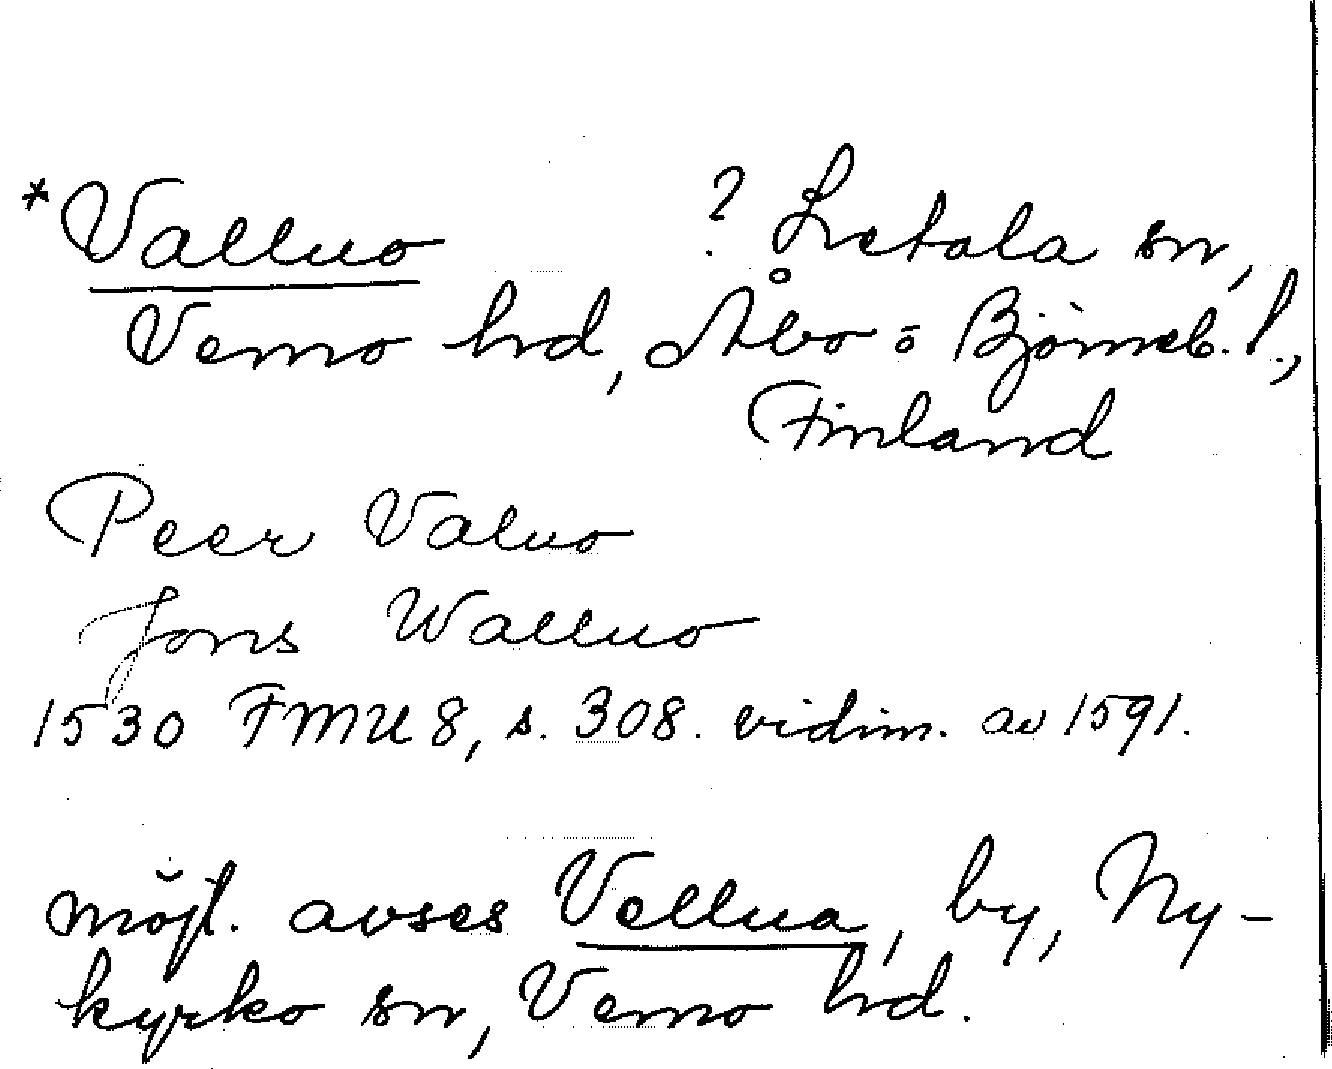 *Valluo ? Letala sn,
Vemo hd, Åbo o Björneb. l.,
Finland
Peer Valuo
Jons Walluo
1530 FMU 8, s. 308. vidim. av 1591.
möjl. avses Vellua, by, Ny-
kyrko sn, Vemo hd.